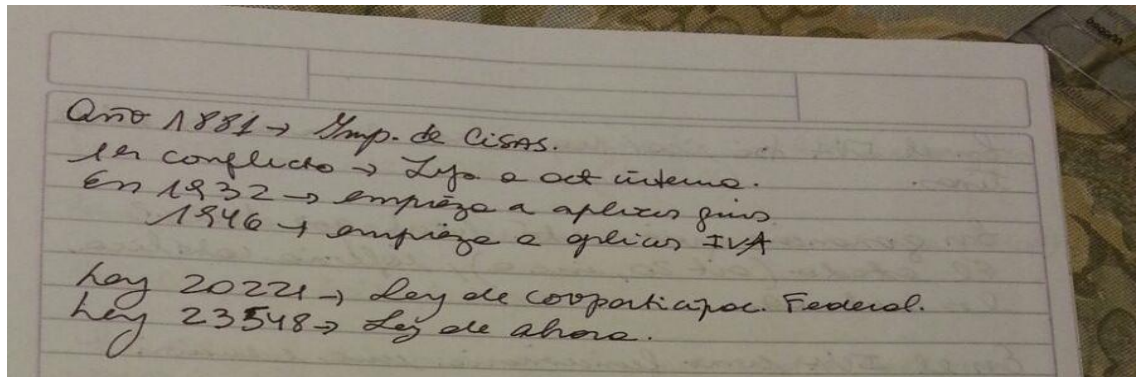 Año 1881 → Imp. de CiSAS.
1er conflicto → a act interna.
En 1932 → empieza a aplicar
1946 → empieza a aplicar IVA
Ley 20221 → Ley de cooparticipac. Federal.
Ley 23548 → Ley de ahora.